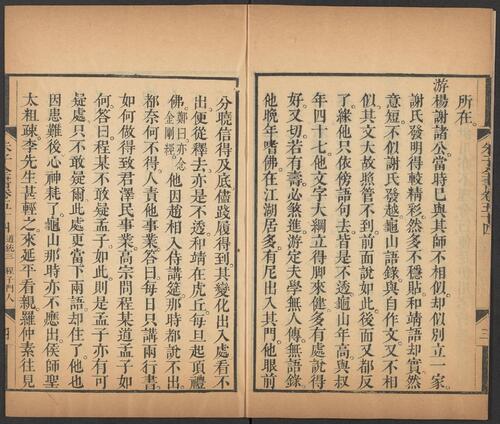 所在
游楊謝諸公當時已與其師不相似却似別立一家
謝氏發明得較精彩然多不穩貼和靖語却實然
意短不似謝氏發越龜山語錄與自作文又不相
似其文大故照管不到前面說如此後面又都反
了緣他只依傍語句去皆是不透龜山年高與叔
年四十七他文字大綱立得脚來健多有處說得
好又切若有壽必煞進游定夫學無人傳無語錄
他晚年嗜佛在江湖居多有尼出入其門他眼前
分曉信得及底儘踐履得到其變化出入處看不
出便從釋去亦是不透和靖在虎丘每旦起頂禮
佛鄭曰亦念金剛經他因趙相入侍講筵那時都說不出
都奈何不得人責他事業答曰每日只講兩行書
如何做得致君澤民事業高宗問程某道孟子如
何答曰程某不敢疑孟子如此則是孟子亦有可
疑處只不敢疑爾此處更當下兩語却住了他也
因患難後心神耗了龜山那時亦不應出侯師聖
太粗疎李先生甚輕之來延平看親羅仲素往見
道統三 程子門人
四